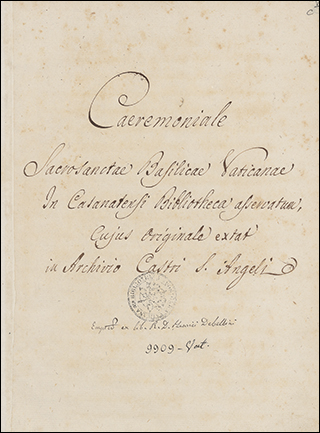 Caeremoniale
Sacrosanctae Basilicae Vaticanae
In Casanatensi Bibliotheca asservatum,
Cujus Originale extat
in Archivio Castri S. Angeli
ex lib. R. D.
9909 -